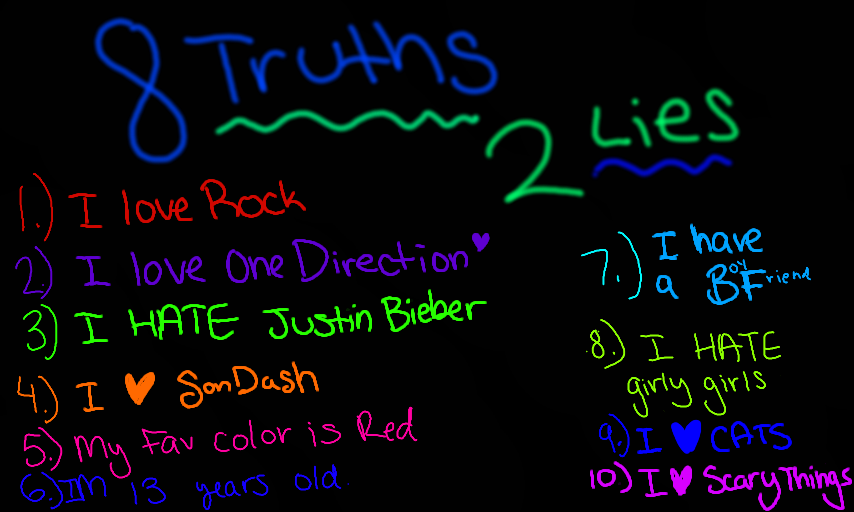 8 Truths
2 Lies
1.) I love Rock
2.) I love One Direction♥
3) I HATE Justin Bieber
4.) I ♥ SonDash
5.) My Fav color is Red
6.) IM 13 years old.
7.) I have
a BoyFriend
8.) I HATE
girly girls
9.) I ♥ CATS
10) I ♥ Scary Things